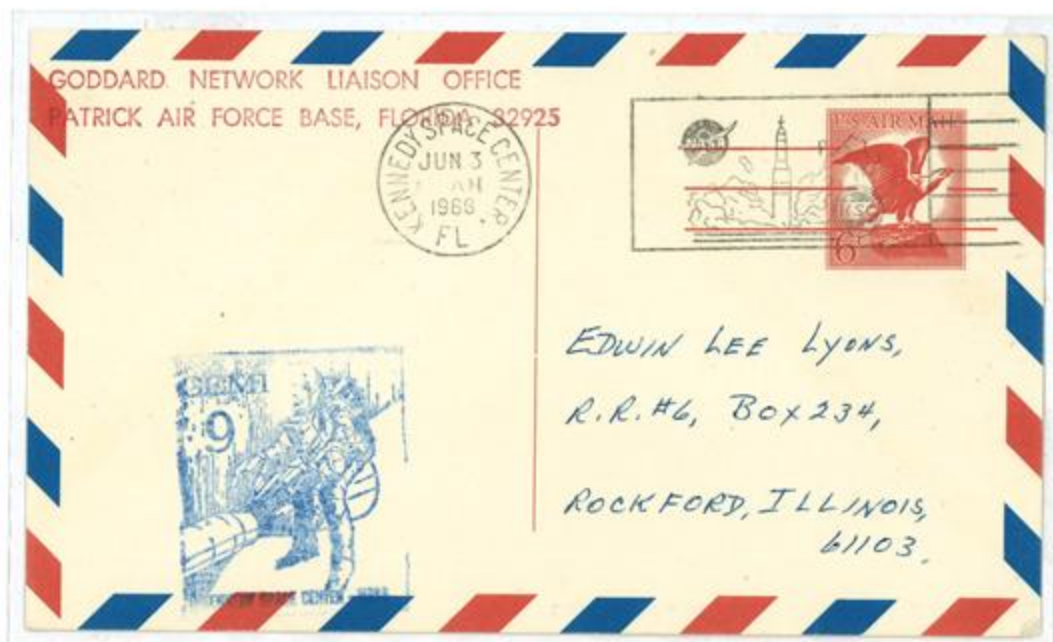 GODDARD NETWORK LIAISON OFFICE
PATRICK AIR FORCE BASE, FLORIDA 32925
KENNEDY SPACE CENTER
JUN 3
AM
1966
FL
U.S. AIR MAIL
6¢
GEMI
9
SPACE CENTER
EDWIN LEE LYONS,
R.R. #6, BOX 234,
ROCKFORD, ILLINOIS,
61103.